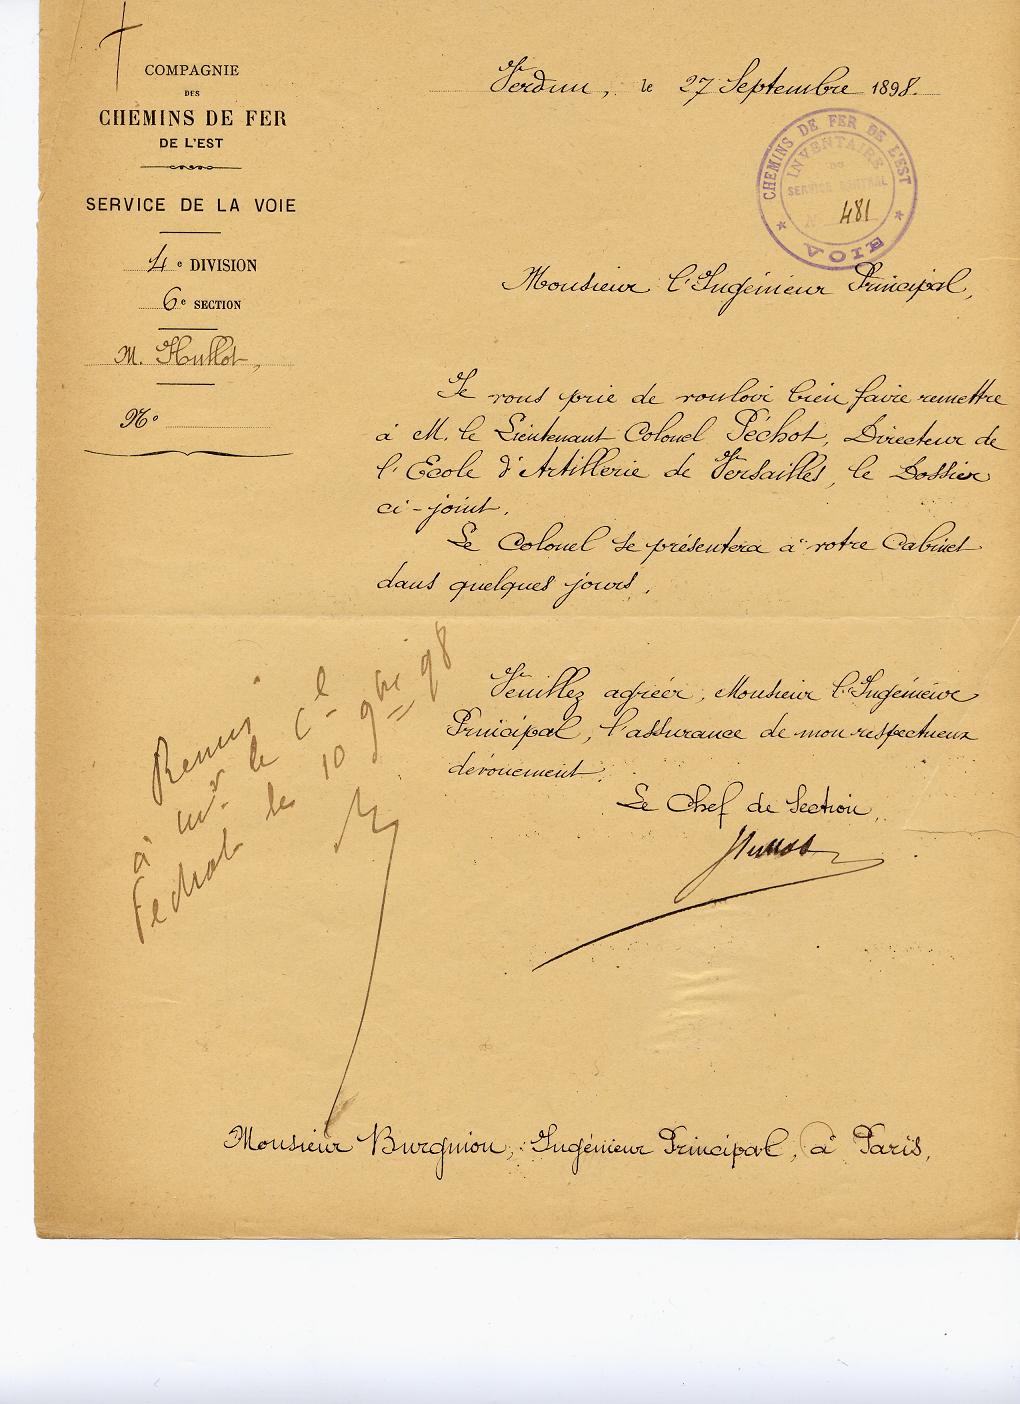 COMPAGNIE
DES
CHEMINS DE FER
DE L'EST
SERVICE DE LA VOIE
4e DIVISION
6e SECTION
M. Hullot,
No
Verdun, le 27 Septembre 1898.
CHEMINS DE FER DE L'EST
INVENTAIRE
DU
SERVICE CENTRAL
No 481
* VOIE *
Monsieur l'Ingénieur Principal,
Je vous prie de vouloir bien faire remettre
à M. le Lieutenant Colonel Péchot, Directeur de
l'Ecole d'Artillerie de Versailles, le Dossier
ci-joint.
Le Colonel se présentera à votre Cabinet
dans quelques jours.
Veuillez agréer, Monsieur l'Ingénieur
Principal, l'assurance de mon respectueux
dévouement.
Le Chef de Section,
Hullot
Remis
à Mr. le Cl
Pechot le 10 9bre 98
Monsieur Burgnion, Ingénieur Principal, à Paris,